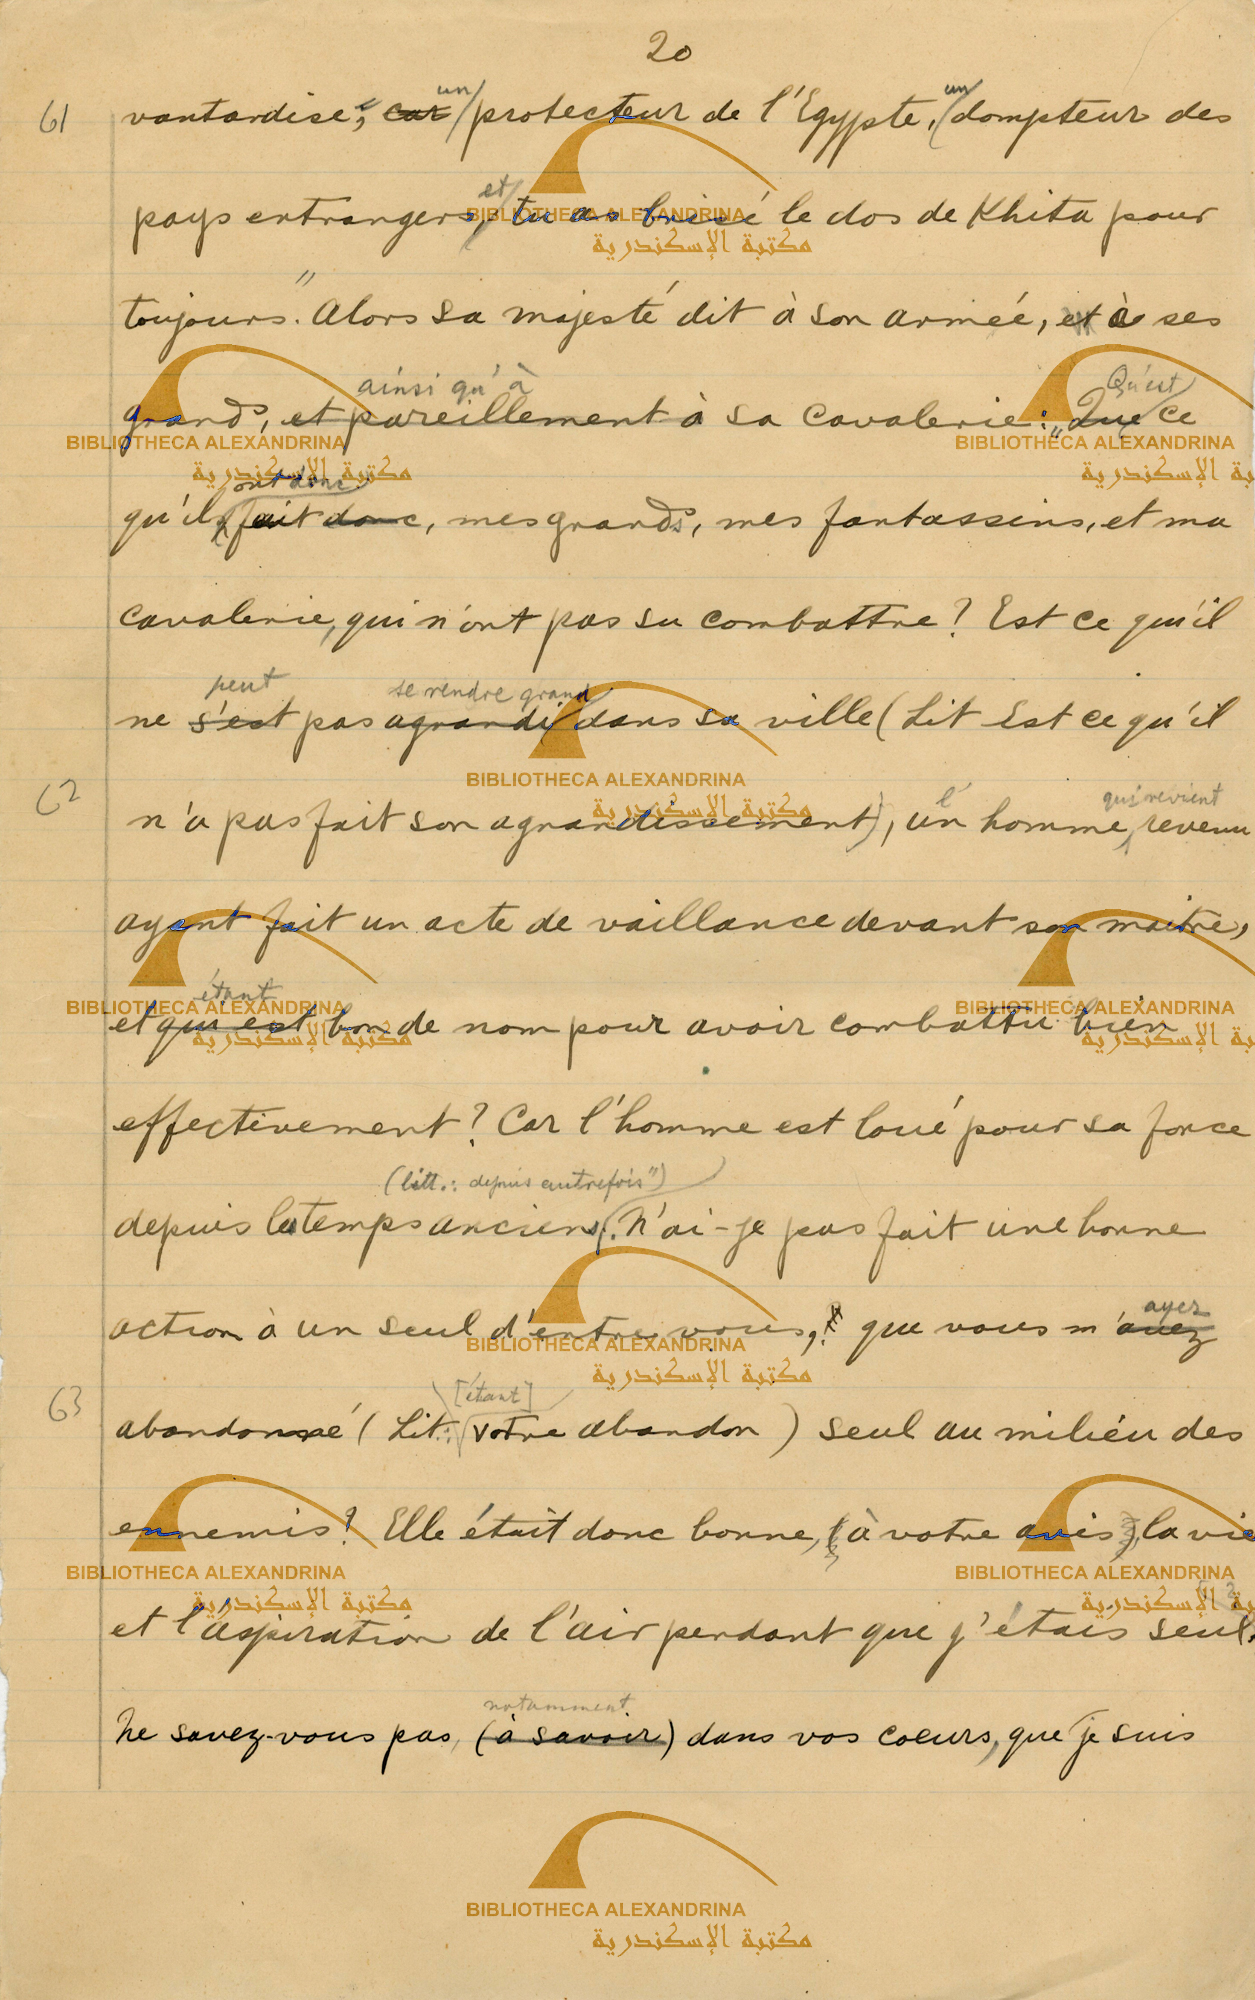 20
61 vantardise, car un protecteur de l'Egypte, un dompteur des
pays entrangers, et tu as brisé le dos de Khita pour
toujours." Alors sa majesté dit à son armée, et à ses
ainsi qu'à Qu'est
grands, et pareillement à sa cavalerie: „Que ce
ont donc
qu'ils fait donc, mes grands, mes fantassins, et ma
cavalerie, qui n'ont pas su combattre? Est ce qu'il
peut se rendre grand
ne s'est pas agrandi dans sa ville (Lit Est ce qu'il
l' qui revient
62 n'a pas fait son agrandissement), un homme, revenu
ayant fait un acte de vaillance devant son maitre,
étant
et qui est bon de nom pour avoir combattu bien
effectivement? Car l'homme est loué pour sa force
(litt.: depuis autrefois")
depuis les temps anciens. N'ai-je pas fait une bonne
ayez
action à un seul d'entre vous, que vous m'avez
[étant]
63 abandonné (Lit: votre abandon) seul au milieu des
ennemis? Elle était donc bonne, à votre avis, la vie
et l'aspiration de l'air pendant que j'étais seul.
notamment
Ne savez-vous pas, (à savoir) dans vos coeurs, que je suis
BIBLIOTHECA ALEXANDRINA
مكتبة الإسكندرية
BIBLIOTHECA ALEXANDRINA
مكتبة الإسكندرية
BIBLIOTHECA ALEXANDRINA
مكتبة الإسكندرية
BIBLIOTHECA ALEXANDRINA
مكتبة الإسكندرية
BIBLIOTHECA ALEXANDRINA
مكتبة الإسكندرية
BIBLIOTHECA ALEXANDRINA
مكتبة الإسكندرية
BIBLIOTHECA ALEXANDRINA
مكتبة الإسكندرية
BIBLIOTHECA ALEXANDRINA
مكتبة الإسكندرية
BIBLIOTHECA ALEXANDRINA
مكتبة الإسكندرية
BIBLIOTHECA ALEXANDRINA
مكتبة الإسكندرية